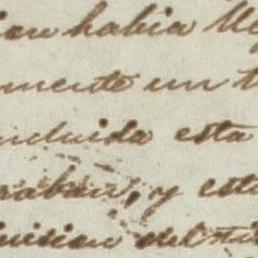 ion habia lle
mente un t
ncluida esta
raban, y esta
uision del